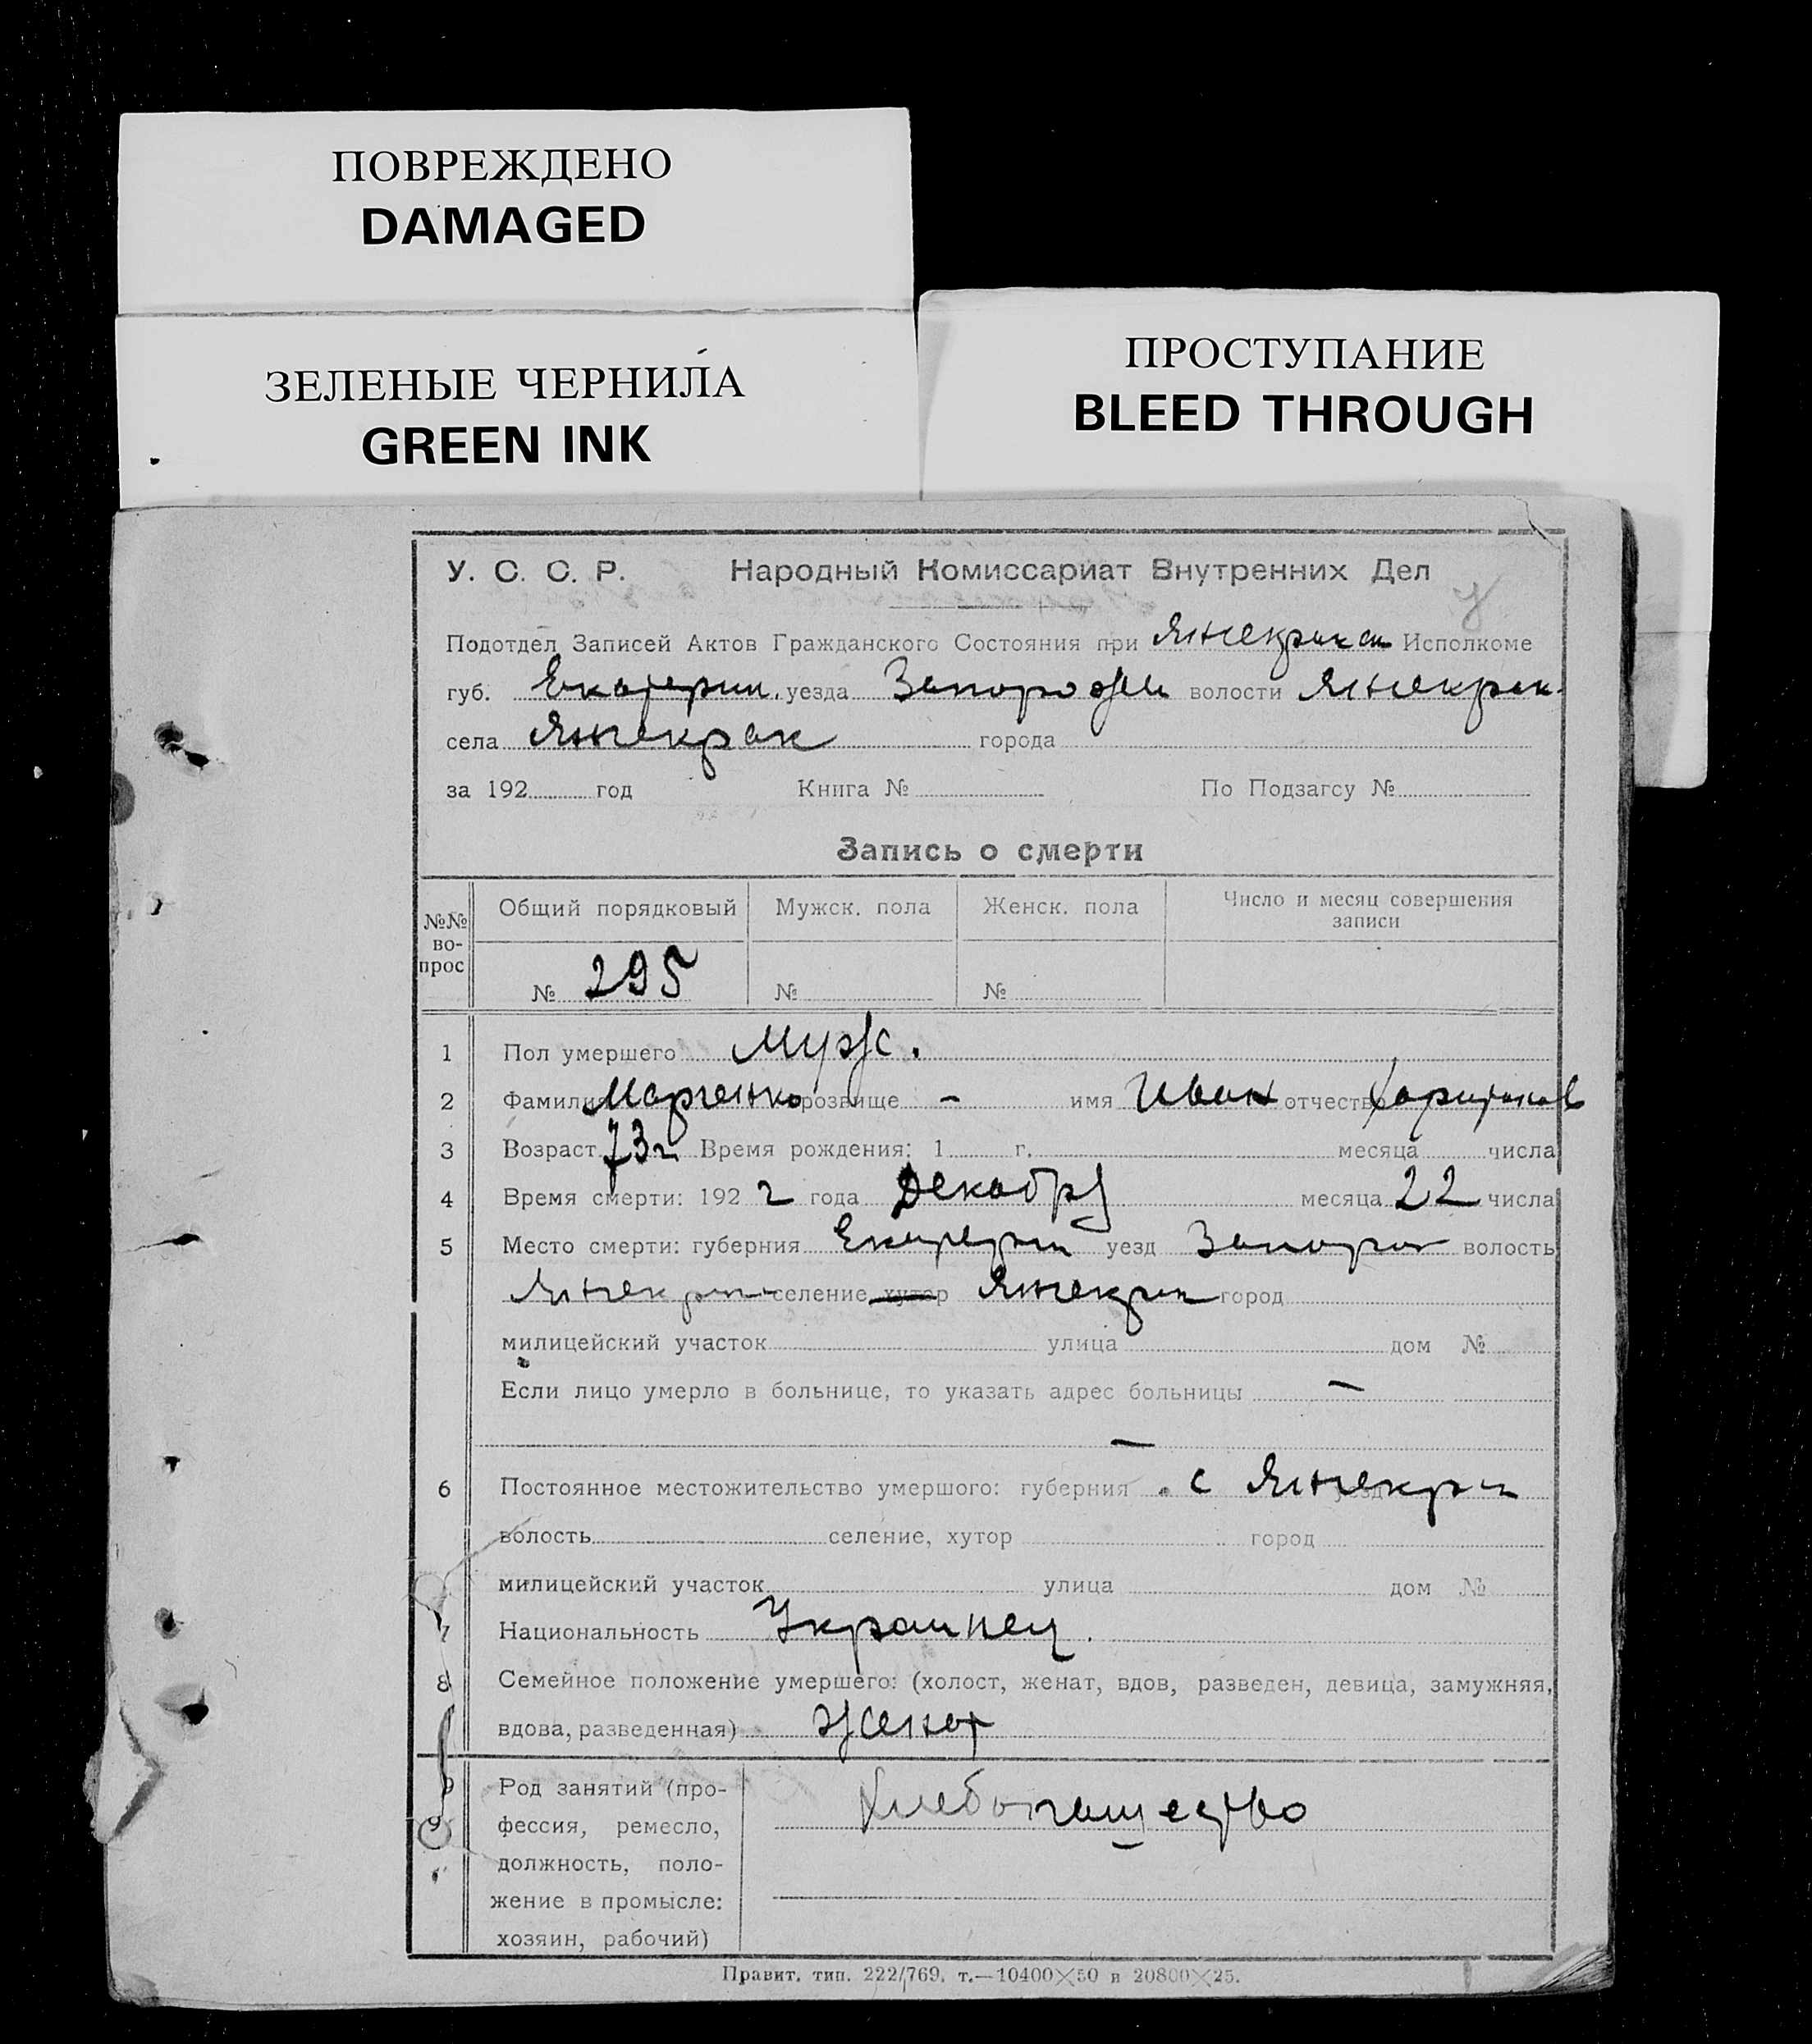 ПОВРЕЖДЕНО
DAMAGED
ЗЕЛЕНЫЕ ЧЕРНИЛА
GREEN INK
ПРОСТУПАНИЕ
BLEED THROUGH
У. С. С. Р. Народный Комиссариат Внутренних Дел
Подотдел Записей Актов Гражданского Состояния при Янчекрак Исполкоме
губ. Екатерин. уезда Запорож волости Янчекрак.
села Янчекрак города
за 192 год Книга № По Подзагсу №
Запись о смерти
№№ во-прос Общий порядковый Мужск. пола Женск. пола Число и месяц совершения записи
№ 295 № №
1 Пол умершего Мужс.
2 Фамилия Марченко прозвище – имя Иван отчество Харитонов
3 Возраст 73 г. Время рождения: 1 г. месяца числа
4 Время смерти: 192 2 года Декабря месяца 22 числа
5 Место смерти: губерния Екатерин уезд Запорож волость
Янчекрак селение хутор Янчекрак город
милицейский участок улица дом №
Если лицо умерло в больнице, то указать адрес больницы –
–
6 Постоянное местожительство умершого: губерния с Янчекрак
волость селение, хутор город
милицейский участок улица дом №
7 Национальность Украинец.
8 Семейное положение умершего: (холост, женат, вдов, разведен, девица, замужняя,
вдова, разведенная) женат
9 Род занятий (про-
фессия, ремесло, Хлебопашество
должность, поло-
жение в промысле:
хозяин, рабочий)
Правит. тип. 222/769. т.—10400×50 и 20800×25.